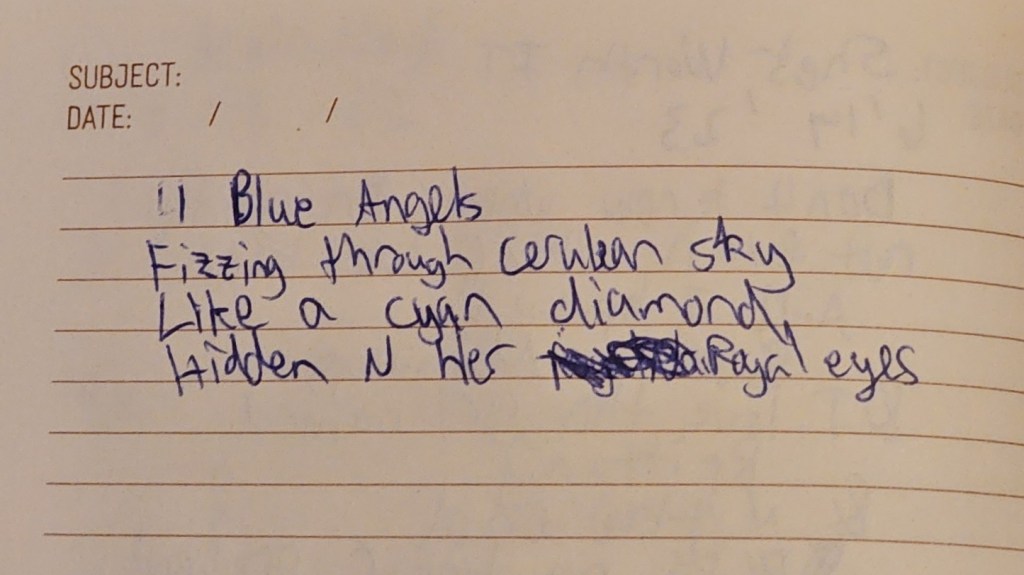 SUBJECT:
DATE: / /
11 Blue Angels
Fizzing through cerulean sky
Like a cyan diamond,
Hidden N Her Royal eyes